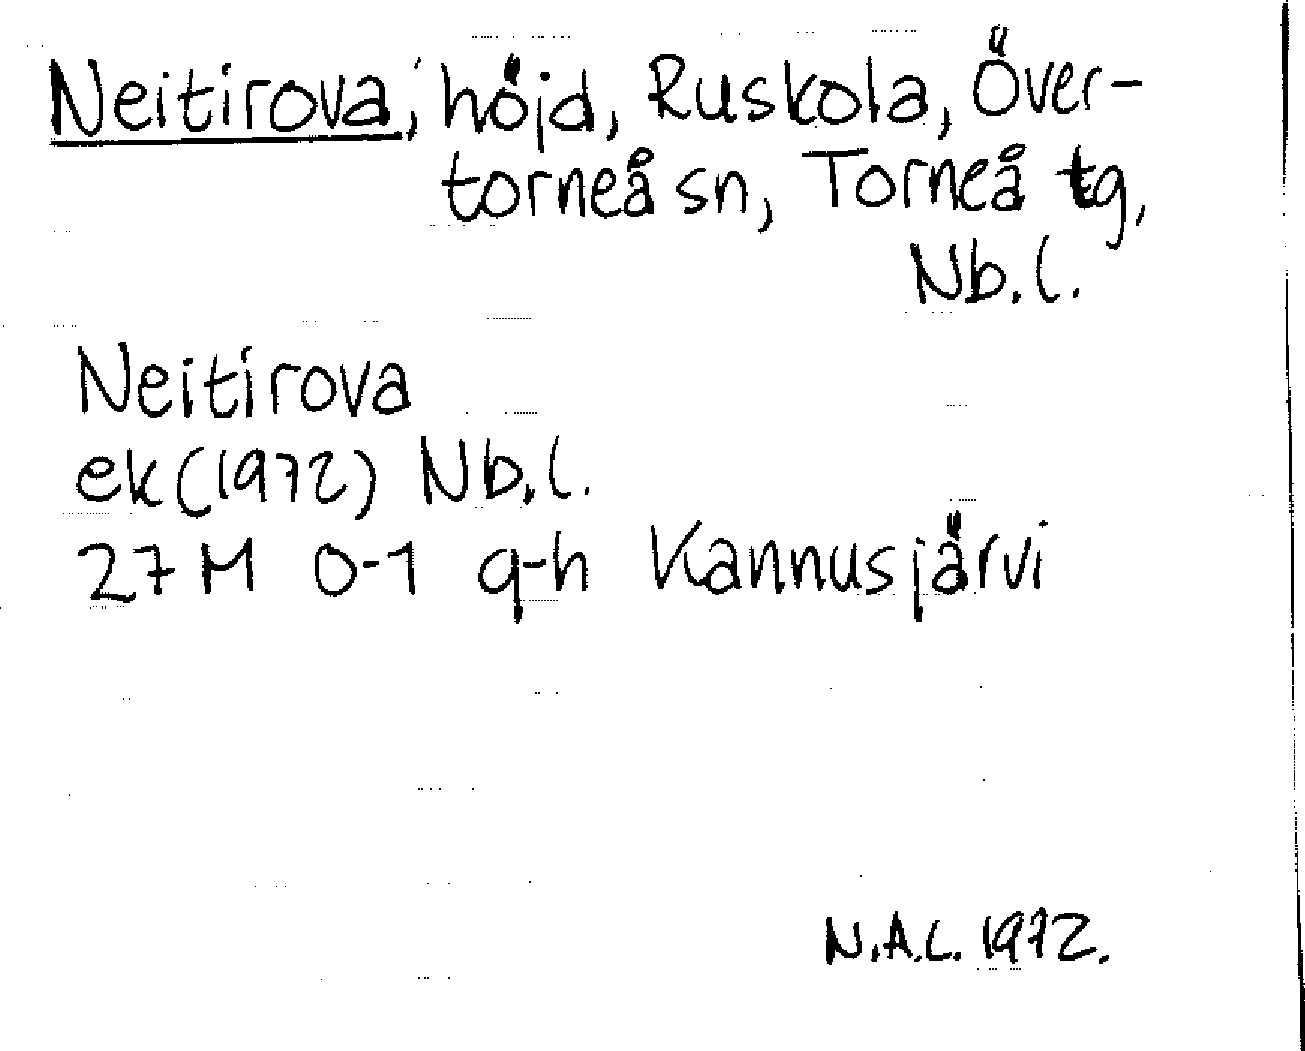 Neitirova, höjd, Ruskola, Över-
torneå sn, Torneå tg,
Nb.l.
Neitirova
ek (1972) Nb.l.
27 M 0-1 g-h Kannusjärvi
N.A.L. 1972.